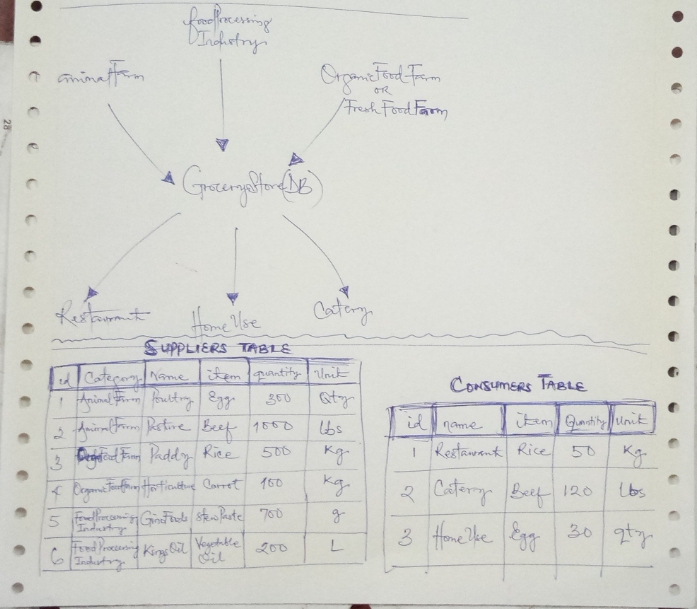 FoodProcessing
Industry
animalFarm
OrganicFoodFarm
OR
FreshFoodFarm
28
GroceryStore(DB)
Restaurant
HomeUse
Catery
SUPPLIERS TABLE
id Category Name item quantity Unit
1 AnimalFarm Poultry Egg 300 Qty
2 AnimalFarm Pasture Beef 1000 Lbs
3 FoodFarm Paddy Rice 500 Kg
4 OrganicFoodFarm Horticulture Carrot 100 Kg
5 FoodProcessing Industry GinoFoods StewPaste 700 g
6 FoodProcessing Industry KingsOil Vegetable Oil 200 L
CONSUMERS TABLE
id name item Quantity Unit
1 Restaurant Rice 50 Kg
2 Catery Beef 120 Lbs
3 HomeUse Egg 30 qty